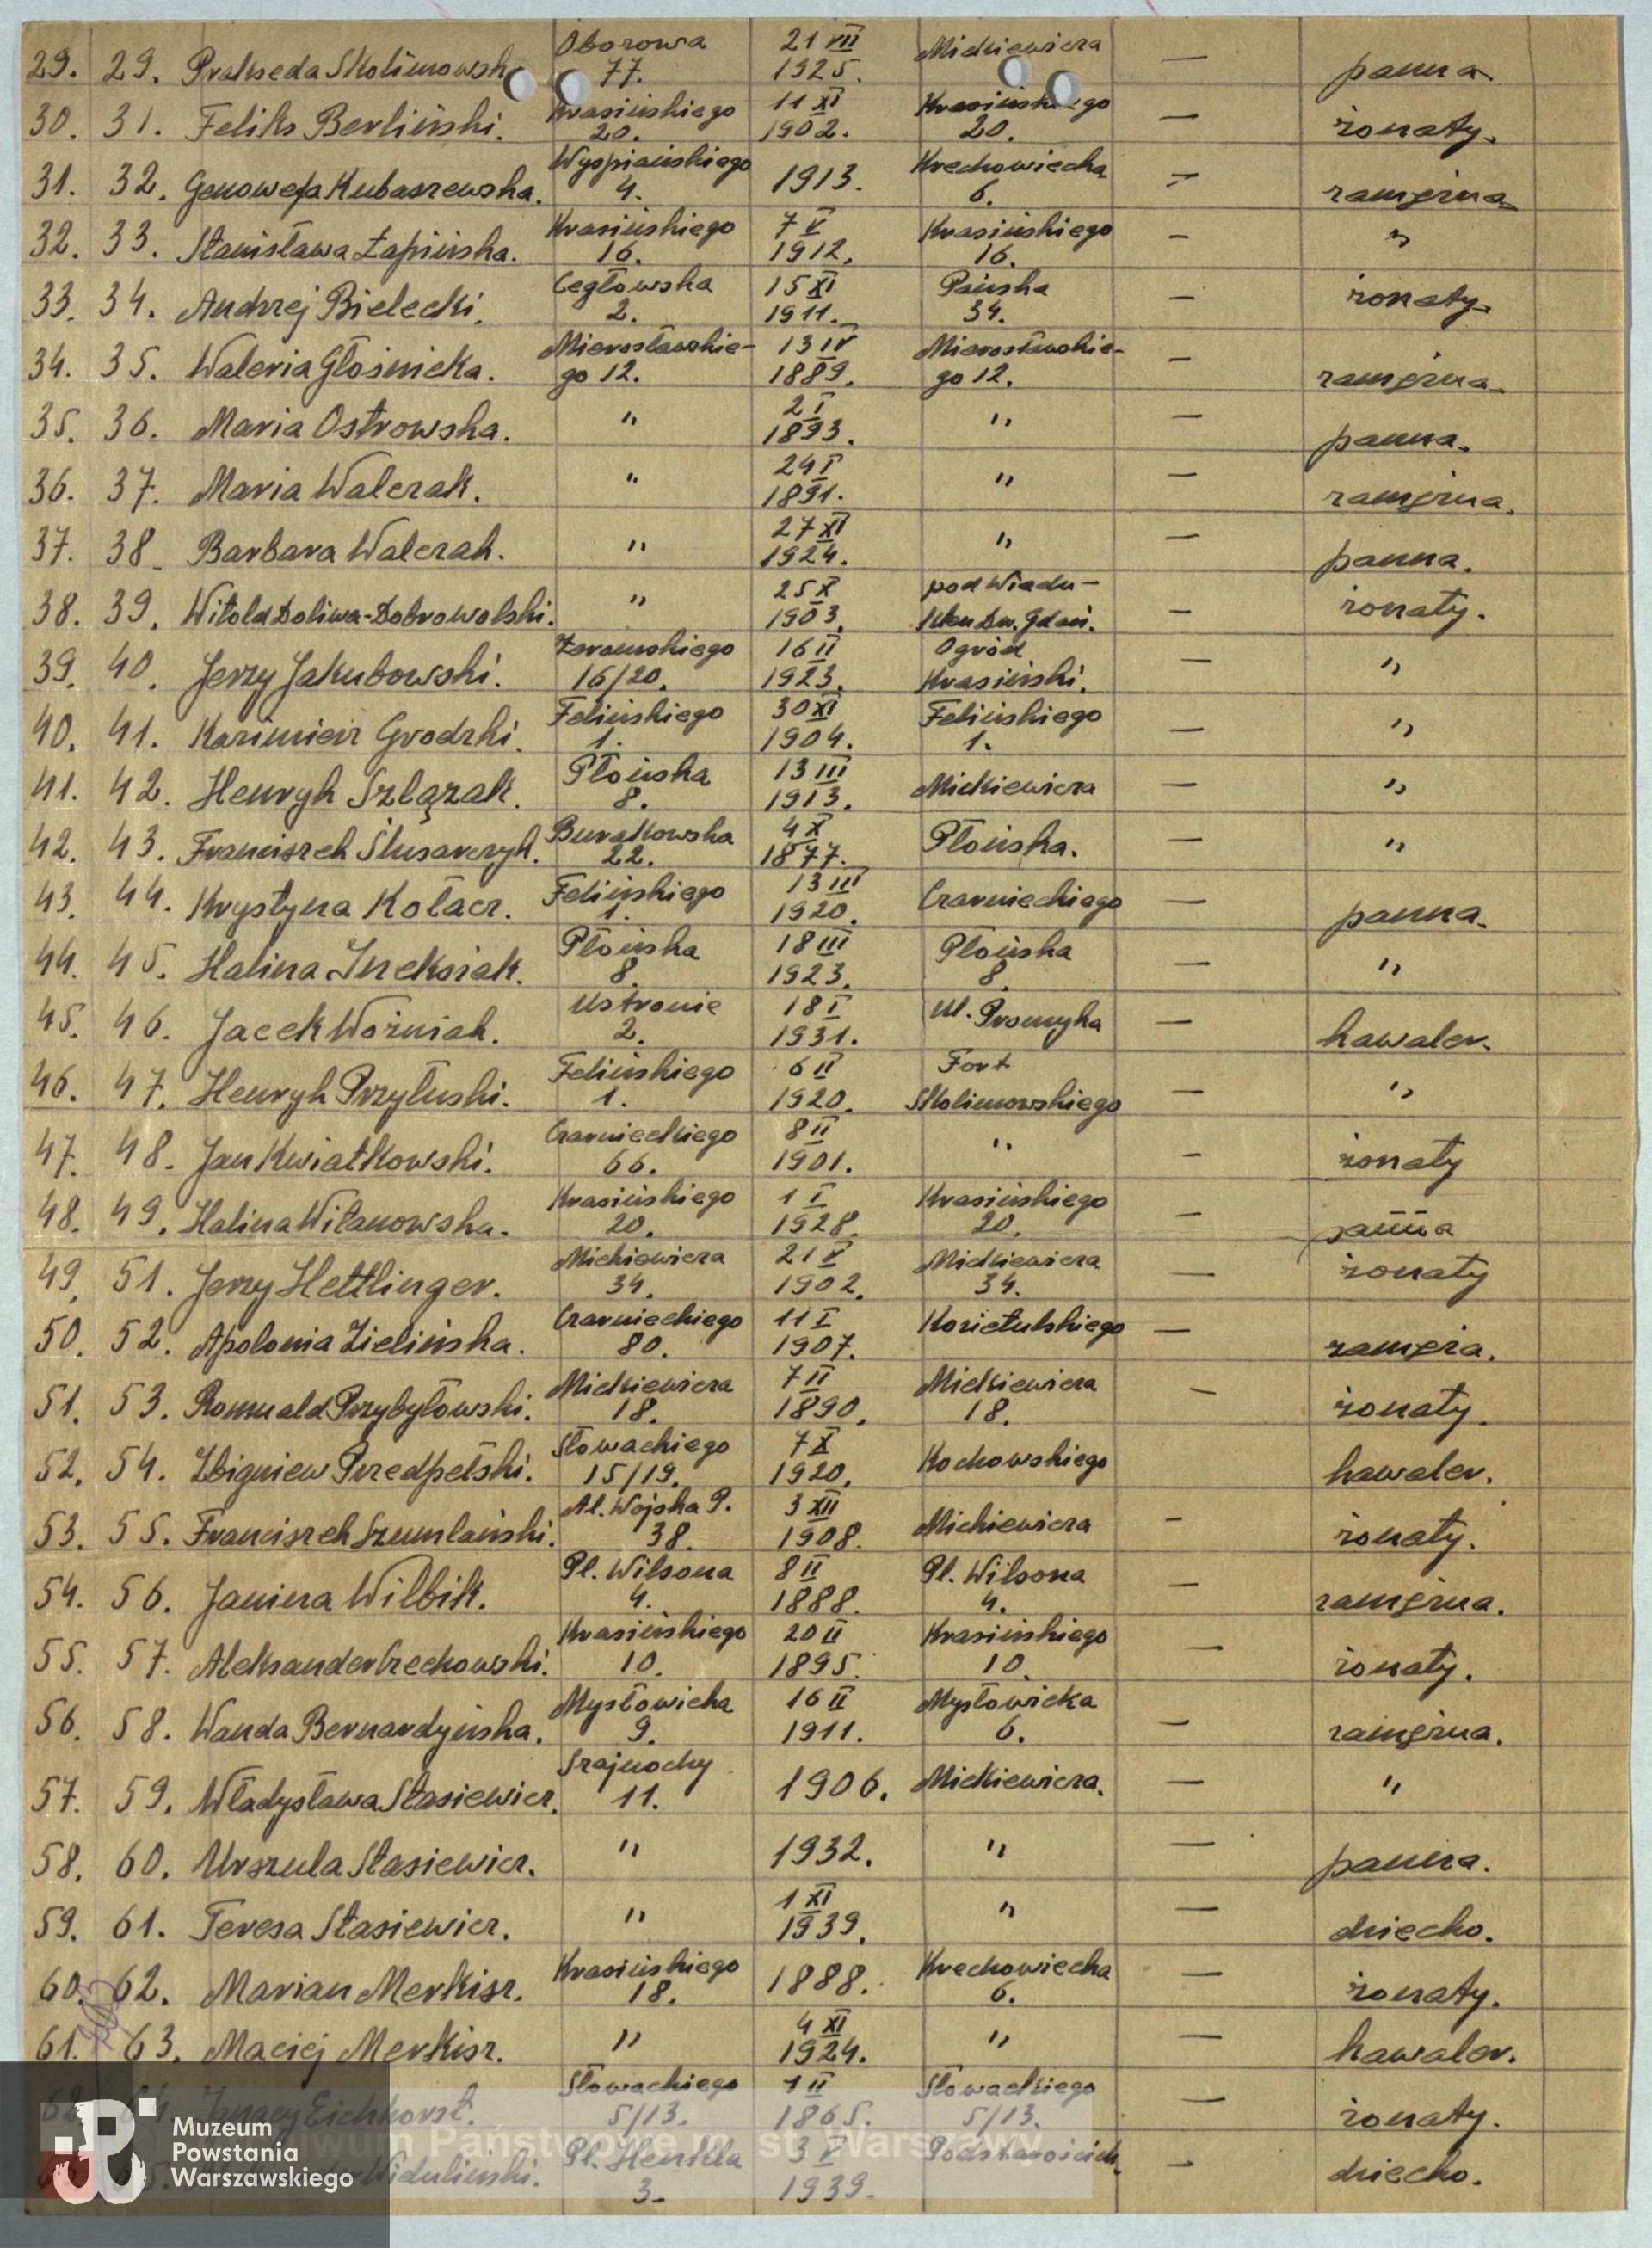 29. 29. Prakseda Skolimowsk Oborowa 77. 21 VII 1925. Mickiewicza — panna
30. 31. Feliks Berliński. Krasińskiego 20. 11 XI 1902. Krasińskiego 20. — żonaty.
31. 32. Genowefa Kubaszewska. Wyspiańskiego 4. 1913. Krechowiecka 6. — zamężna
32. 33. Stanisława Łapińska. Krasińskiego 16. 7 V 1912. Krasińskiego 16. — "
33. 34. Andrzej Bielecki. Cegłowska 2. 15 XI 1911. Pańska 34. — żonaty
34. 35. Waleria Głośnicka. Mierosławskie-go 12. 13 IV 1889. Mierosławskie-go 12. — zamężna
35. 36. Maria Ostrowska. " 2 I 1893. " — panna.
36. 37. Maria Walczak. " 24 I 1891. " — zamężna.
37. 38. Barbara Walczak. " 27 XI 1924. " — panna.
38. 39. Witold Doliwa-Dobrowolski. " 25 X 1903. pod Wiadu-ktem Dw. Gdań. — żonaty.
39. 40. Jerzy Jakubowski. Żeromskiego 16/20. 16 II 1923. Ogród Krasiński. — "
40. 41. Kazimierz Grodzki. Felińskiego 1. 30 XI 1904. Felińskiego 1. — "
41. 42. Henryk Szlązak. Płońska 8. 13 III 1913. Mickiewicza — "
42. 43. Franciszek Ślusarczyk. Burakowska 22. 4 X 1877. Płońska. — "
43. 44. Krystyna Kołacz. Felińskiego 1. 13 III 1920. Czarnieckiego — panna.
44. 45. Halina Jreksiak. Płońska 8. 18 III 1923. Płońska 8. — "
45. 46. Jacek Woźniak. Ustronie 2. 18 I 1931. Ul. Promyka — kawaler.
46. 47. Henryk Przyłuski. Felińskiego 1. 6 II 1920. Fort Skolimowskiego — "
47. 48. Jan Kwiatkowski. Czarnieckiego 66. 8 II 1901. " — żonaty
48. 49. Halina Witanowska. Krasińskiego 20. 1 I 1928. Krasińskiego 20. — panna
49. 51. Jerzy Hettlinger. Mickiewicza 34. 21 V 1902. Mickiewicza 34. — żonaty
50. 52. Apolonia Zielińska. Czarnieckiego 80. 11 I 1907. Kozietulskiego — zamęża.
51. 53. Romuald Przybyłowski. Mickiewicza 18. 7 II 1890. Mickiewicza 18. — żonaty.
52. 54. Zbigniew Przedpełski. Słowackiego 15/19. 7 X 1920. Kochowskiego kawaler.
53. 55. Franciszek Szumlański. Al. Wojska P. 38. 3 XII 1908. Mickiewicza — żonaty.
54. 56. Janina Wilbik. Pl. Wilsona 4. 8 II 1888. Pl. Wilsona 4. — zamężna.
55. 57. Aleksander Czechowski. Krasińskiego 10. 20 II 1895. Krasińskiego 10. — żonaty.
56. 58. Wanda Bernardyńska. Mysłowicka 9. 16 II 1911. Mysłowicka 6. — zamężna.
57. 59. Władysława Stasiewicz. Szajnochy 11. 1906. Mickiewicza. — "
58. 60. Urszula Stasiewicz. " 1932. " — panna.
59. 61. Teresa Stasiewicz. " 1 XI 1939. " — dziecko.
60. 62. Marian Merkisz. Krasińskiego 18. 1888. Krechowiecka 6. — żonaty.
61. 63. Maciej Merkisz. " 4 XI 1924. " — kawaler.
62. 64. Ignacy Eichhorst. Słowackiego 5/13. 1 II 1865. Słowackiego 5/13. — żonaty.
Widuliński. Pl. Henkla 3. 3 V 1939. — dziecko.
Muzeum
Powstania
Warszawskiego
Archiwum Państwowe m. st. Warszawy